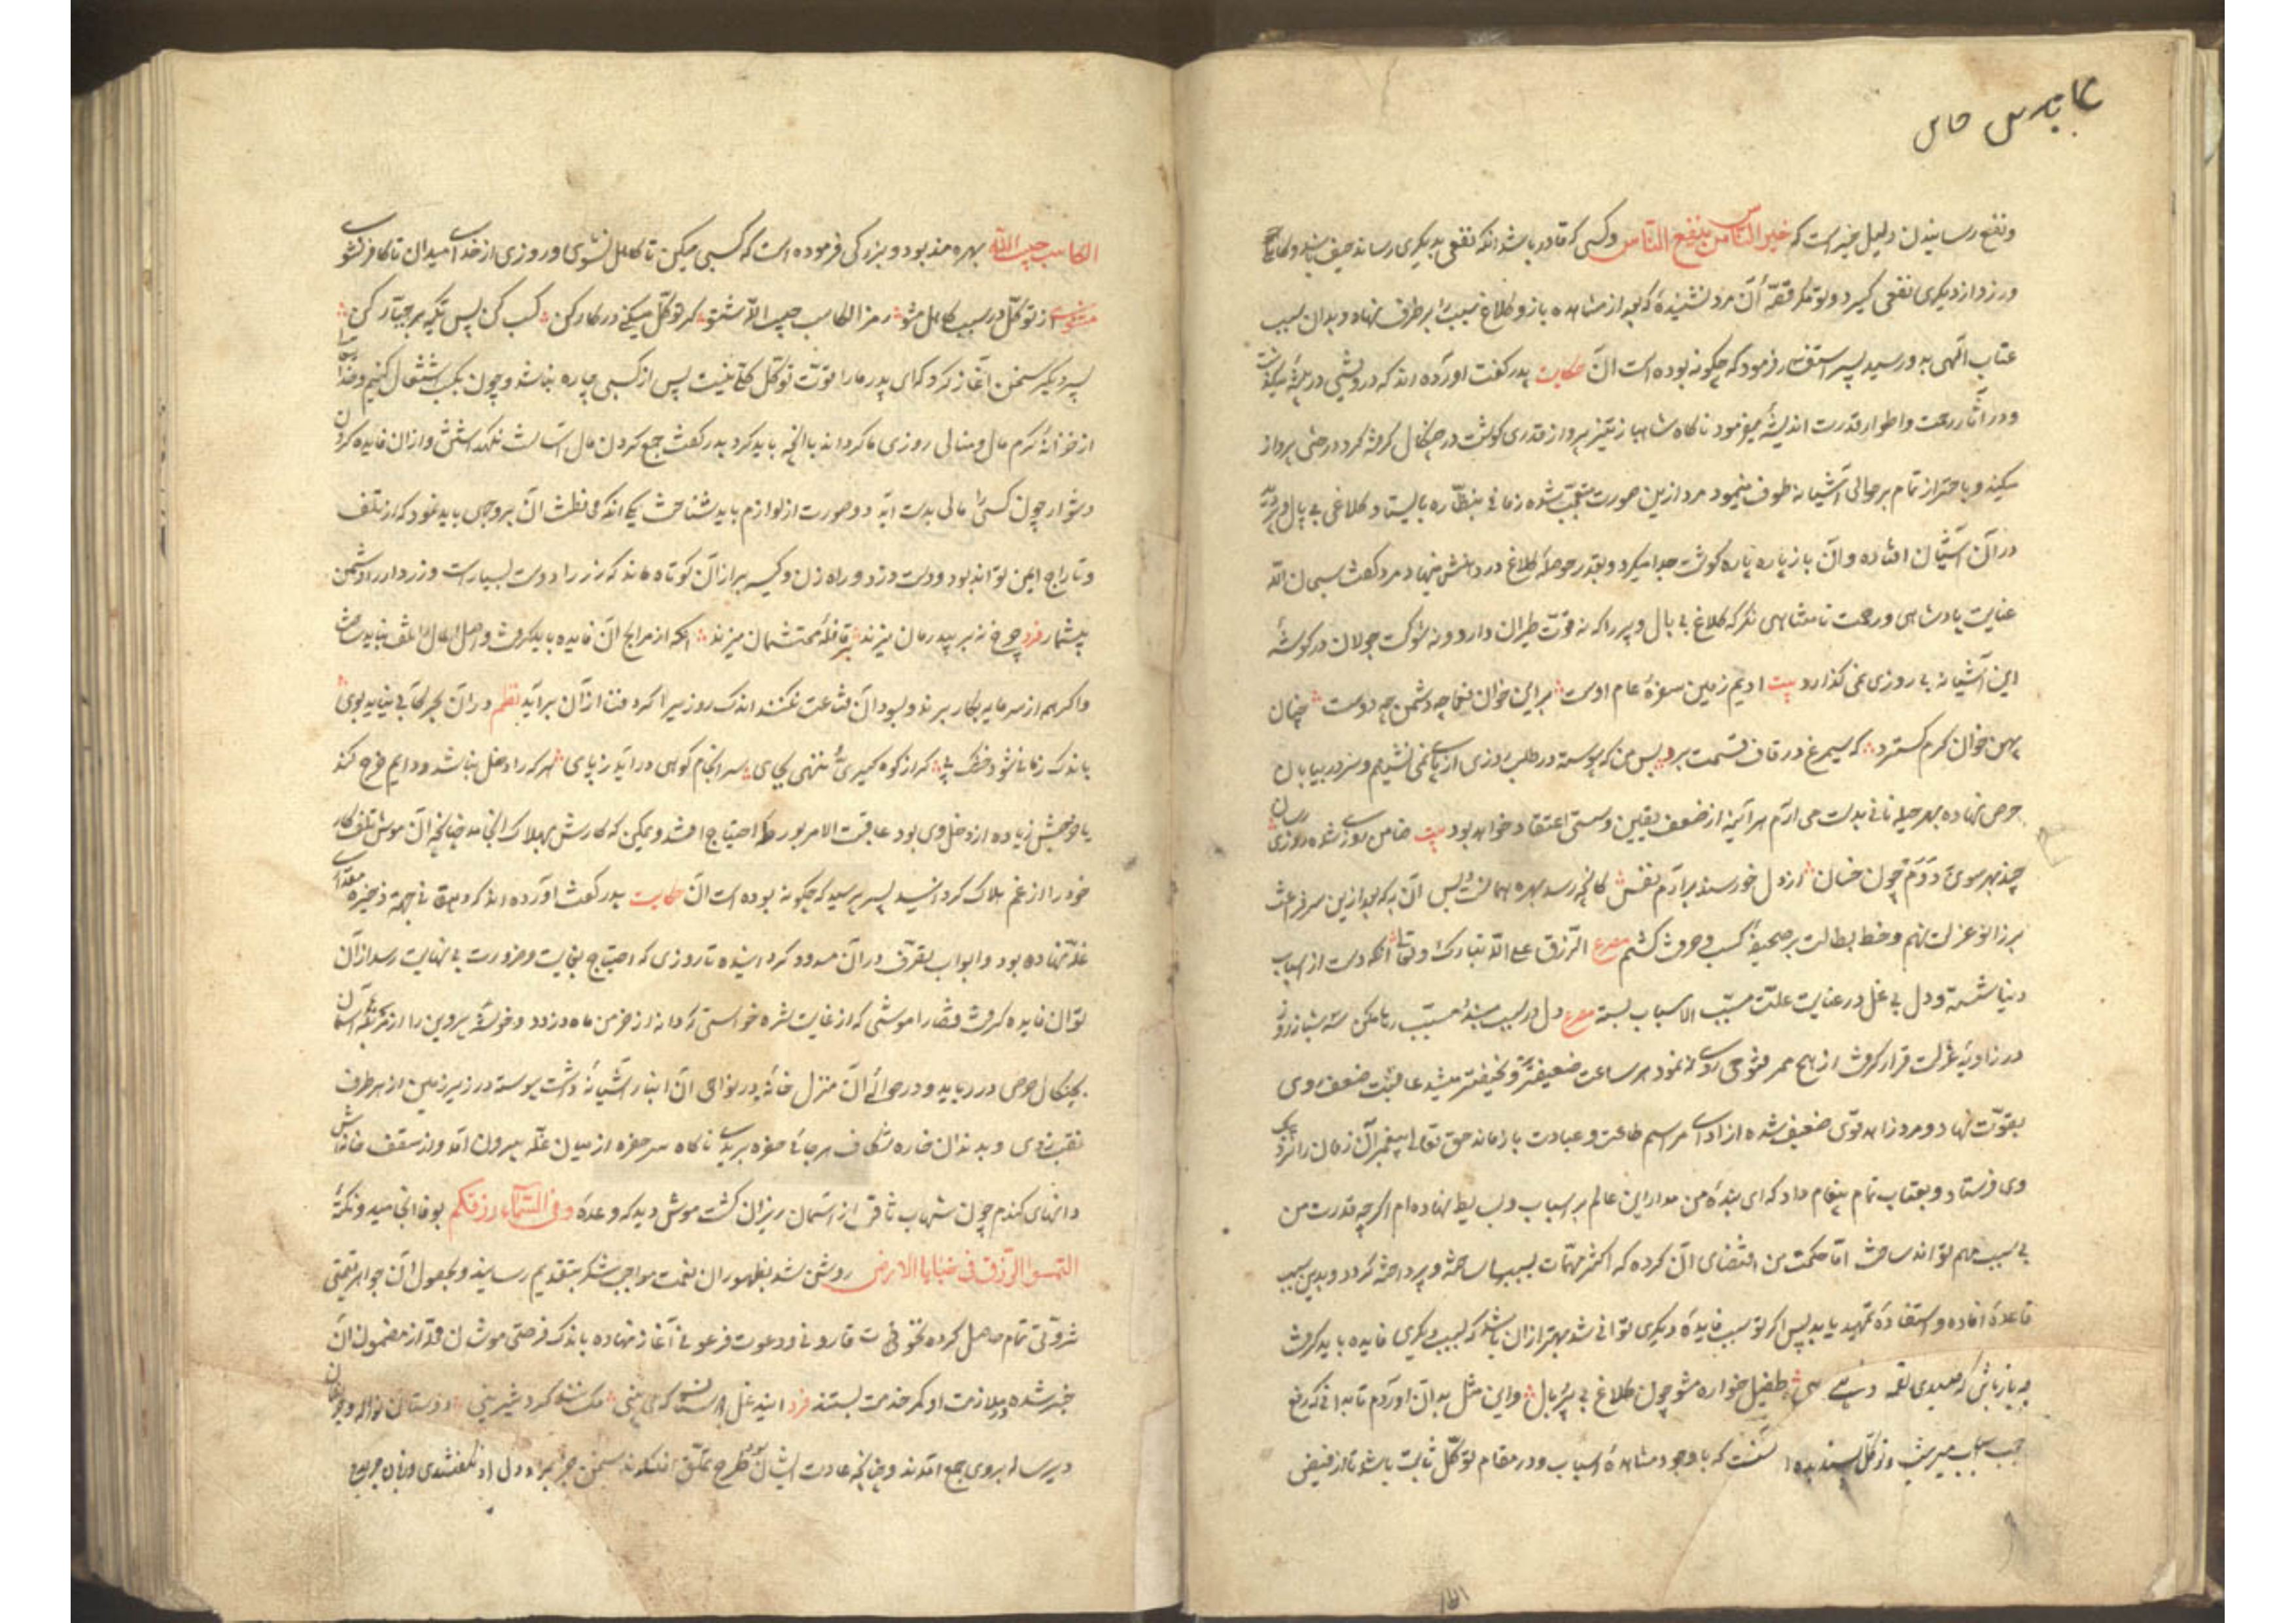 ونفع رسانیدن دلیل خیر است که خیر الناس من ینفع الناس وکسی که قادر باشد انکه نفعی بدیکری رساند حیف باشد که کاهلی
ورزد واز دیکری نفعی کیرد وتو مکر قصّهٔ آن مرد نشنیدهٔ که بعد از مشاهده باز وکلاغ سبب را بر طرف نهاده وبدان سبب
عتاب الهی بدو رسید پسر استفسار فرمود که چکونه بوده است آن حکایت پدر کفت اورده اند که درویشی در بیشهٔ میکذشت
ودر آثار رحمت واطوار قدرت اندیشهٔ میفرمود ناکاه شاهباز تیز پرواز قدری کوشت در چنکال کرفته کرد درختی پرواز
میکند وباهتزاز تمام بر حوالی آشیانه طوف مینمود مرد ازین صورت متعجّب شده زمانی بنظّاره بایستاد کلاغی بی بال وپر دید
در آن آشیان افتاده وآن باز پاره پاره کوشت جدا میکرد وبقدر حوصلهٔ کلاغ در دهانش مینهاد مرد کفت سبحان الله
عنایت پادشاهی ورحمت نامتناهی نکر که کلاغ بی بال وپر را که نه قوّت طیران دارد ونه شوکت جولان در کوشهٔ
این آشیانه بی روزی نمی کذارد بیت ادیم زمین سفرهٔ عام اوست بر این خوان یغما چه دشمن چه دوست چنان
پهن خوان کرم کسترد که سیمرغ در قاف قسمت برد پس من که پیوسته در طلب روزی از پای نمی نشینم وسر در بیابان
حرص نهاده بهر حیله نانی بدست می ارم هر آینه از ضعف یقین وسستی اعتقاد خواهد بود بیت ضامن روزی شده روزی رسان
چند بهر سوی دوم چون خسان از دل خورسند برآرم نفس کانچه رسد بهره همانست وبس آن به که بعد ازین سر فراغت
بر زانو عزلت نهم وخط بطالت بر صحیفهٔ کسب وحرفت کشم مصرع الرزق علی الله تبارک وتعالی انکه دست از اسباب
دنیا شسته ودل بی غل در عنایت علّت مسبّب الاسباب بسته مصرع دل در سبب مبند ومسبّب رها مکن سه شبانه روز
در زاویهٔ عزلت قرار کرفت از هیچ ممر فتوحی روی نمود هر ساعت ضعیفتر ونحیفتر میشد عاقبت ضعف روی
بقوّت نهاد ومرد زاهد قوی ضعیف شده از ادای مراسم طاعت وعبادت بازماند حق تعالی پیغمبر آن زمان را نزدیک
وی فرستاد وبعتاب تمام پیغام داد که ای بندهٔ من مدار این عالم بر اسباب ووسایط نهاده ام اکرچه قدرت من
بی سبب مهم تواند ساخت امّا حکمت من اقتضای آن کرده که اکثر مهمّات بسببها ساخته وپرداخته کردد وبدین سبب
قاعدهٔ افاده واستفاده تمهید یابد پس اکر تو سبب فایدهٔ دیکری توانی شد بهتر از ان باشد که بسبب دیکری فایده باید کرفت
چو باز باش که صیدی کنی ولقمه دهی طفیل خواره مشو چون کلاغ بی پر وبال واین مثل بدان اوردم تا بدانی که رفع
حجب اسباب میسر نیست وتوکّل پسندیده انست که با وجود مشاهدهٔ اسباب ودر مقام توکّل ثابت باشد تا از فیض
الکاسب حبیب الله بهره مند بود وبزرکی فرموده است که کسبی میکن تا کاهل نشوی وروزی از خدای میدان تا کافر نشوی
مثنوی از توکّل در سبب کاهل مشو رمز الکاسب حبیب الله شنو کر توکّل میکنی در کار کن کسب کن پس تکیه بر جبّار کن
پسر دیکر سخن آغاز کرد که ای پدر ما را قوّت توکّل کلّی نیست پس از کسبی چاره نباشد وچون بکسب اشتغال کنیم وخدا
از خزانهٔ کرم مال ومنالی روزی ما کرداند با انچه باید کرد پدر کفت جمع کردن مال آسانست نکهداشتن وازان فایده کردن
دشوار چون کسی را مالی بدست آید دو صورت از لوازم باید شناخت یکی انکه محافظت آن بر وجهی باید نمود که از تلف
وتاراج ایمن تواند بود ودست دزد وراه زن وکیسه بر از آن کوتاه ماند که زر را دوست بسیارست وزردار را دشمن
بیشمار فرد چرخ نه بر بیدرمان میزند قافلهٔ محتشمان میزند انکه از مرابح آن فایده باید کرفت واصل مال را تلف نباید ساخت
واکر هم از سرمایه بکار برند وبسود آن قناعت نکنند اندک روزی را کرد فنا از آن برآید نظم در آن بحر کابی نیاید بجوی
باندک زمانی شود خشک پی کر از کوه کیری ونهی بجای سر انجام کوه اندر آید ز پای هر که را دخل نباشد ودایم خرج کند
یا خرجش زیاده از دخل وی بود عاقبت الامر بورطهٔ احتیاج افتد ویمکن که کارش بهلاک انجامد چنانچه آن موش تلف کار
خود را از غم هلاک کردانید پسر پرسید که چکونه بوده است آن حکایت پدر کفت آورده اند که دهقانی جهت ذخیره مقداری
غلّه نهاده بود وابواب تصرّف در آن مسدود کردانیده تا روزی که احتیاج بغایت وضرورت بی نهایت رسد از آن
توان فایده کرفت قضا را موشی که از غایت شره خواستی که دانه از خرمن ماه دزدد وخوشهٔ پروین را از مزرعهٔ آسمان
بچنکال حرص در رباید ودر حوالی آن منزل خانهٔ ودر نواحی آن انبار آشیانهٔ داشت پیوسته در زیر زمین از هر طرف
نقب زدی وبدندان خاره شکاف هر جانب حفره بریدی ناکاه سر حفره از میان غلّه بیرون آمد واز سقف خانه‌اش
دانهای کندم چون شهاب ثاقب از آسمان ریزان کشت موش دید که وعدهٔ وفی السّماء رزقکم بوفا انجامید ونکتهٔ
التمسوا الرّزق فی خبایا الارض روشن شد بظهور ان نعمت مواجب شکر بتقدیم رسانید وبحصول آن جواهر قیمتی
ثروتی تمام حاصل کرده نخوت قارونی ودعوت فرعونی آغاز نهاده باندک فرصتی موشان محلّه از مضمون آن
خبر شده بملازمت او کمر خدمت بستند فرد این دغل دوستان که می بینی مکسانند کرد شیرینی دوستان نواله وحریفان
پیاله بروی جمع آمدند وچنانچه عادت ایشان بود طرح تملّق افکندند سخن جز بمراد دل او نکفتندی وزبان جز بمدح
۱۵۱